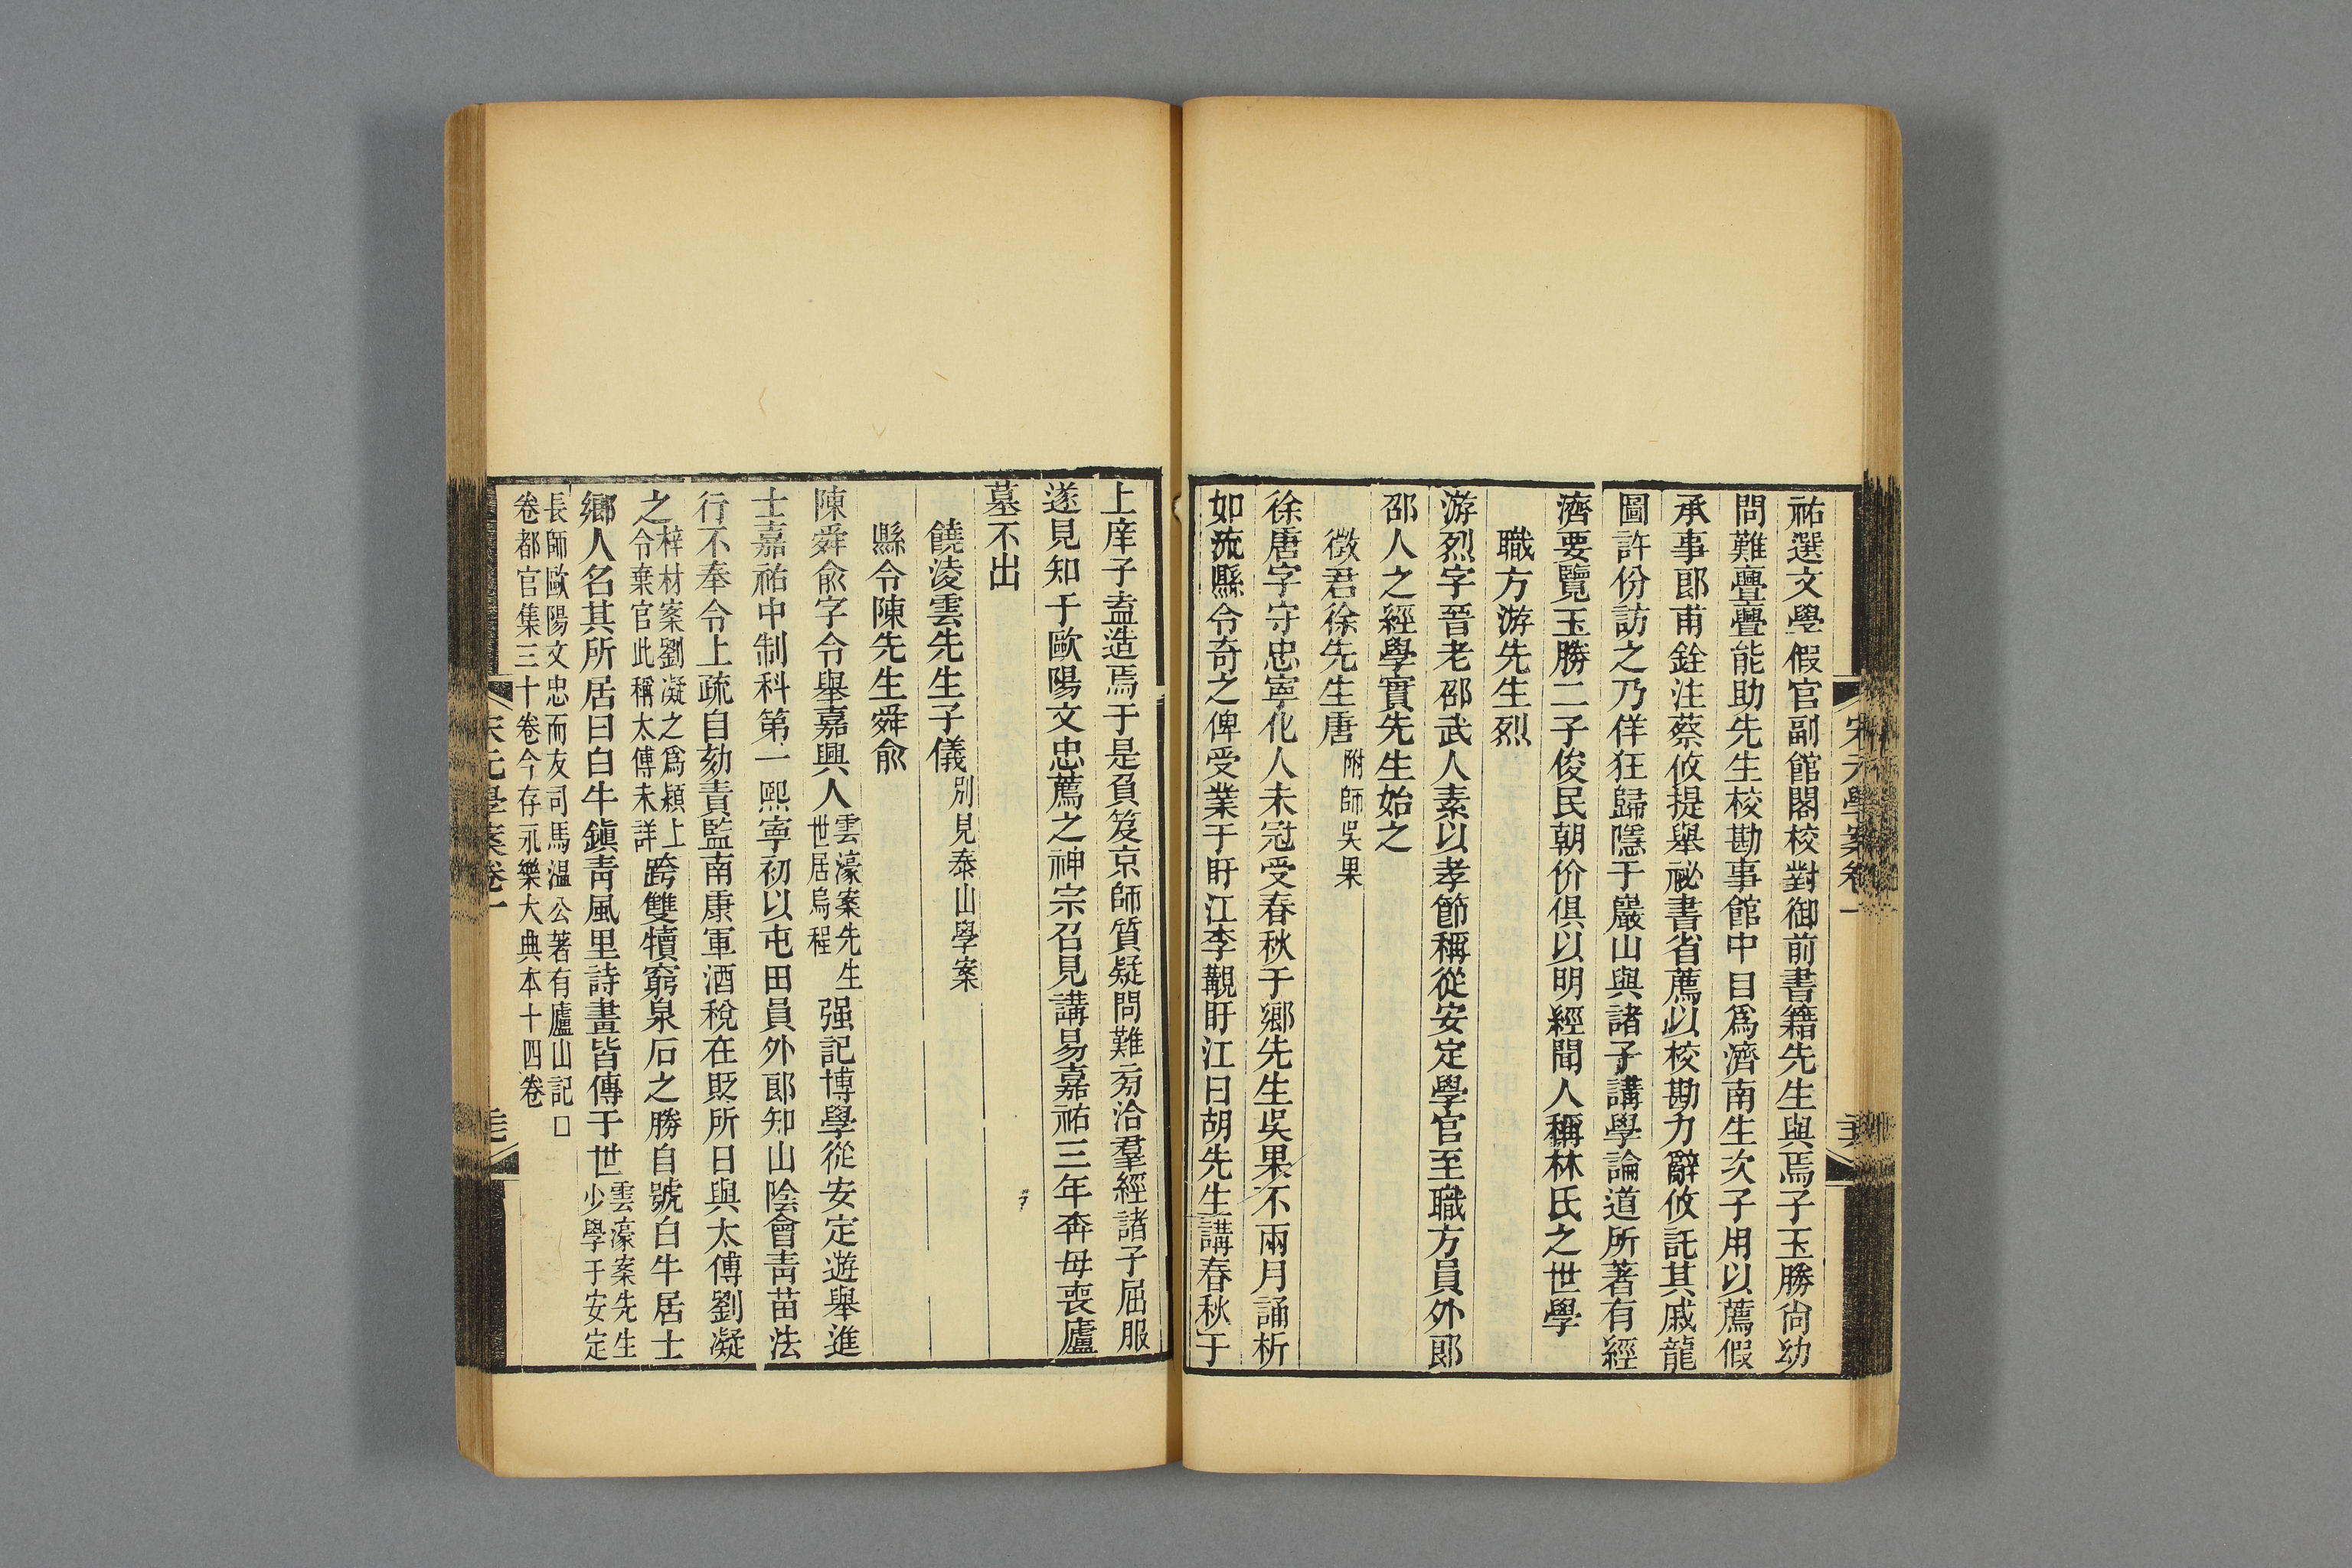 宋元學案卷一
祐選文學假官副館閣校對御前書籍先生與焉子玉勝尙幼
問難亹亹能助先生校勘事館中目爲濟南生次子用以薦假
承事郎甫銓注蔡攸提舉祕書省薦以校勘力辭攸託其戚龍
圖許份訪之乃佯狂歸隱于巖山與諸子講學論道所著有經
濟要覽玉勝二子俊民朝价俱以明經聞人稱林氏之世學
職方游先生烈
游烈字晉老邵武人素以孝節稱從安定學官至職方員外郎
邵人之經學實先生始之
徵君徐先生唐附師吳果
徐唐字守忠寧化人未冠受春秋于鄉先生吳果不兩月誦析
如流縣令奇之俾受業于盱江李覯盱江曰胡先生講春秋于
上庠子盍造焉于是負笈京師質疑問難旁洽羣經諸子屈服
遂見知于歐陽文忠薦之神宗召見講易嘉祐三年奔母喪廬
墓不出
饒淩雲先生子儀別見泰山學案
縣令陳先生舜俞
陳舜俞字令舉嘉興人雲濠案先生世居烏程强記博學從安定遊舉進
士嘉祐中制科第一熙寧初以屯田員外郎知山陰會靑苗法
行不奉令上疏自劾責監南康軍酒稅在貶所日與太傅劉凝
之梓材案劉凝之爲潁上令棄官此稱太傅未詳跨雙犢窮泉石之勝自號白牛居士
鄉人名其所居曰白牛鎭靑風里詩畫皆傳于世雲濠案先生少學于安定
長師歐陽文忠而友司馬溫公著有廬山記□
卷都官集三十卷今存永樂大典本十四卷
宋元學案卷一